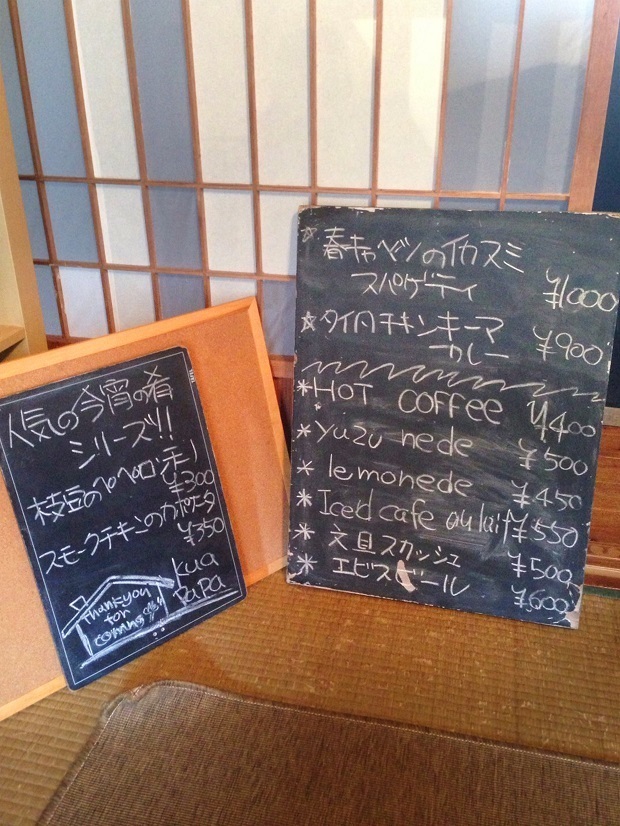 人気の今宵の肴
シリーズ!!
枝豆のペペロンチーノ
¥300
スモークチキンのカポナータ
¥350
Thankyou
for
coming
kua
PaPa
☆ 春キャベツのイカスミ
スパゲティ ¥1000
☆ タイ風チキンキーマ
カレー ¥900
* HOT coffee ¥400
* yuzu-nede ¥500
* lemonede ¥450
* Iced cafe au lait ¥550
* 文旦スカッシュ ¥500
* エビスビール ¥600